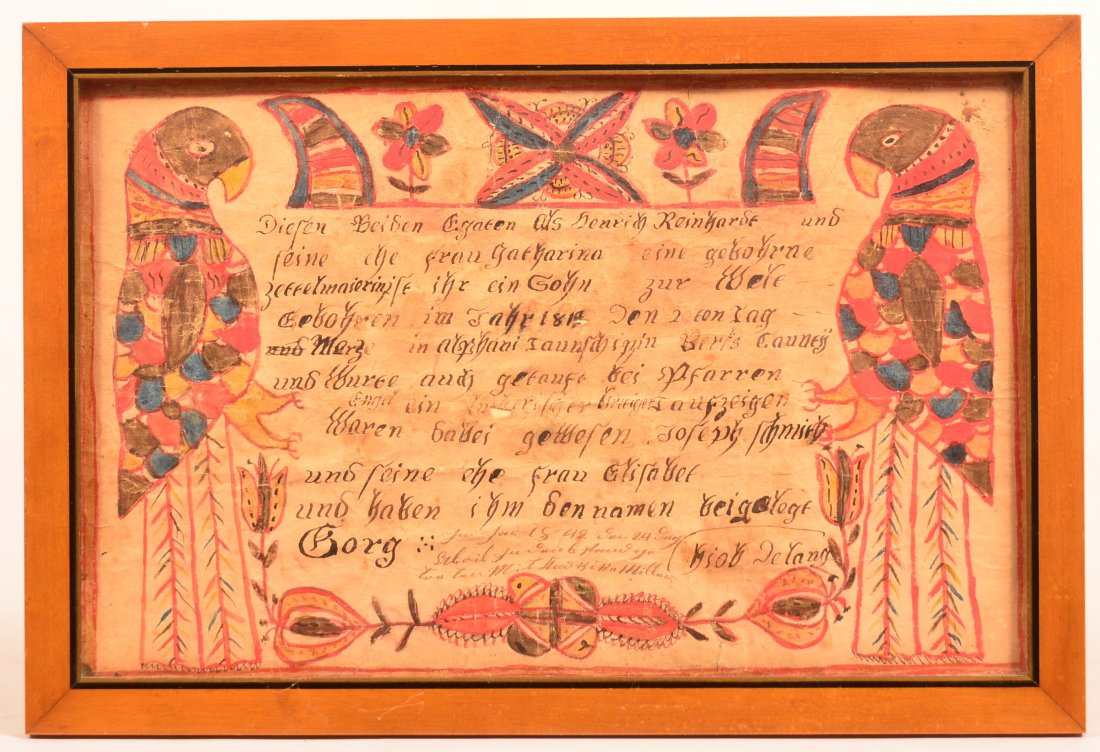 Diesen Beiden Egaten Als Henrich Reinhardt und
seine ehe frau Catharina eine gebohrne
Zettelmaierin ist ihr ein Sohn zur Welt
Gebohren im Jahr 181 Den 2ten Tag
Merz in alßhani Taunschip in Berks Caunty
und Wurte auch getauft bei Pfarren
Engel ein Lutterischer Taufzeigen
Waren dabei gewesen Joseph schmith
und seine ehe frau Elisabet
und haben ihm den namen beigelegt
Gorg
Hiob Delang